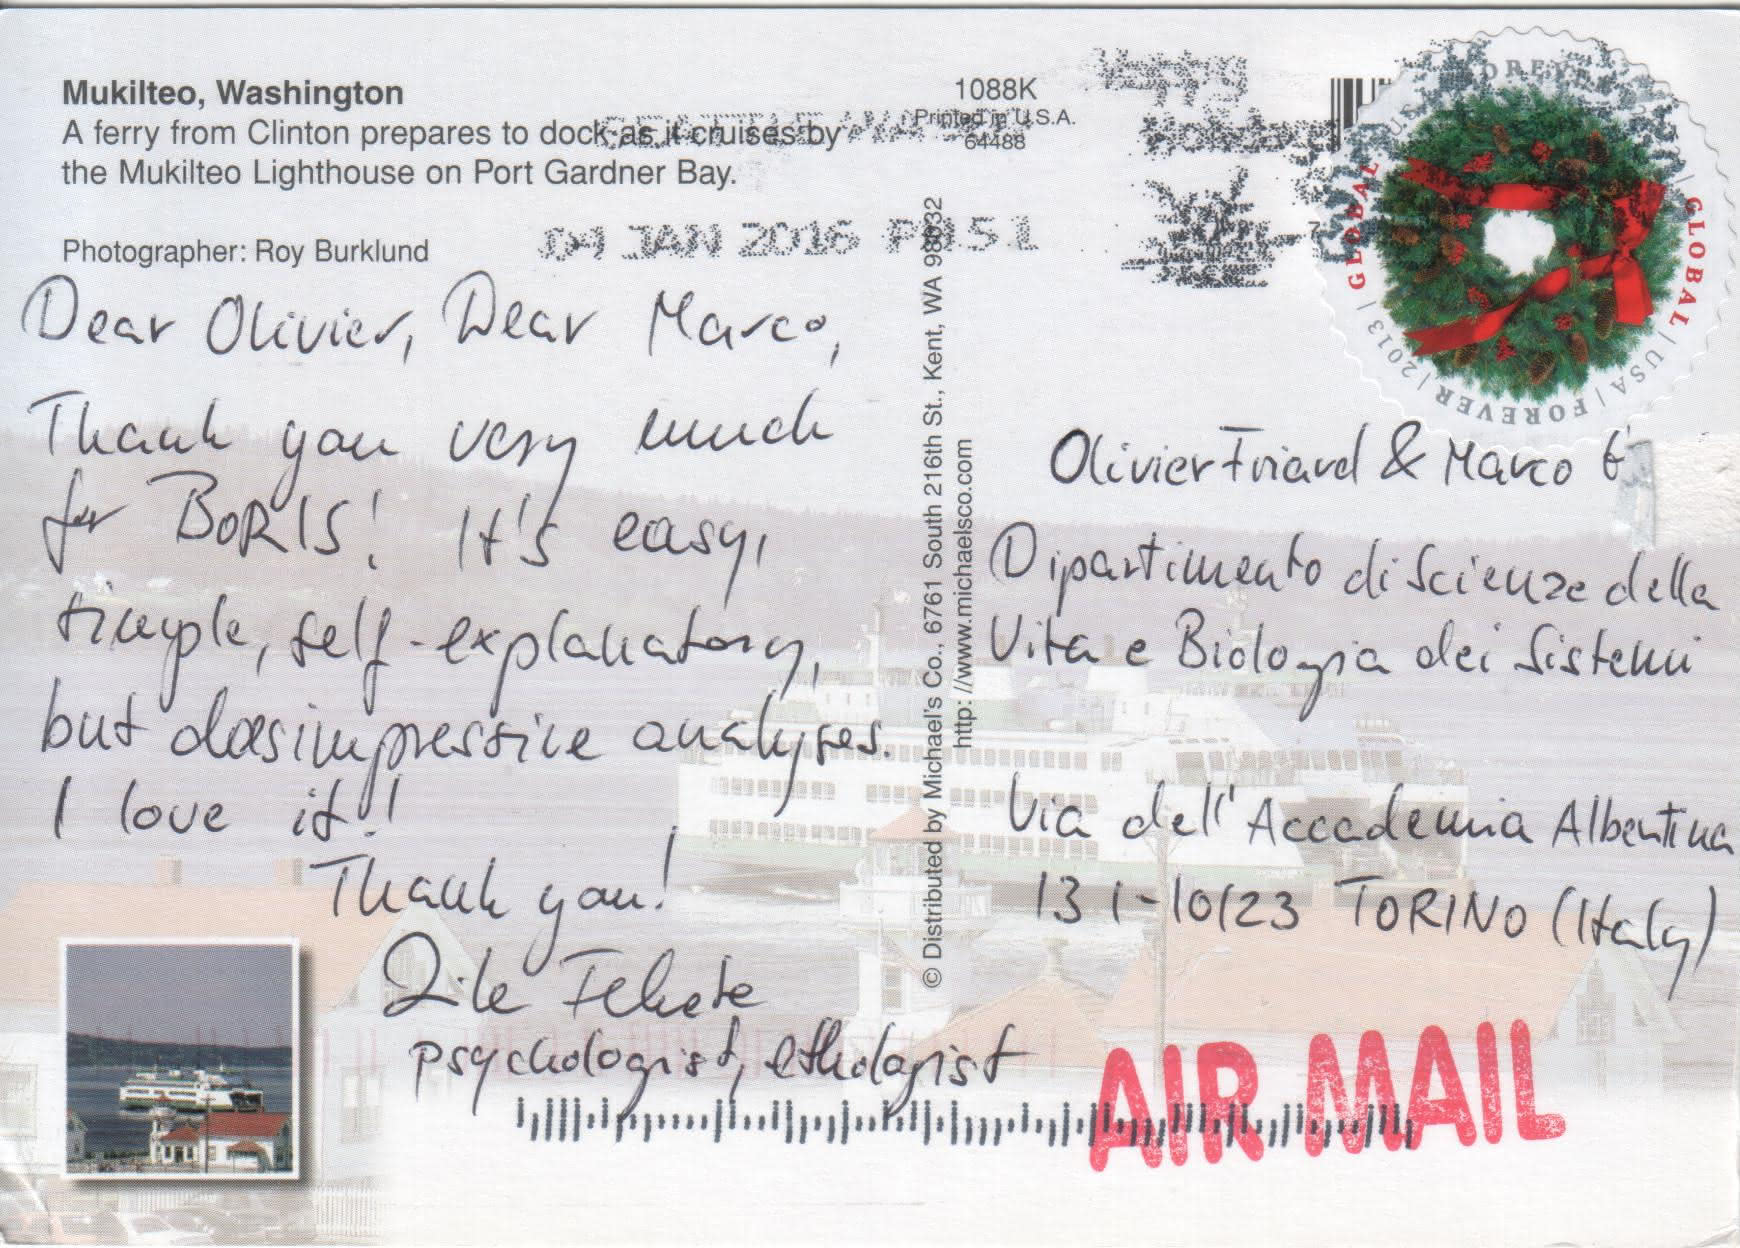 Mukilteo, Washington
A ferry from Clinton prepares to dock as it cruises by
the Mukilteo Lighthouse on Port Gardner Bay.
Photographer: Roy Burklund
1088K
Printed in U.S.A.
64488
SEATTLE WA
04 JAN 2016 PM 5 L
Happy
Holidays
FOREVER | GLOBAL | USA | FOREVER | 2013 | GLOBAL | USA
Dear Olivier, Dear Marco,
Thank you very much
for BORIS! It's easy,
simple, self-explanatory,
but does impressive analyses.
I love it!
Thank you!
Fekete
psychologist, ethologist
© Distributed by Michael's Co., 6761 South 216th St., Kent, WA 98032
http://www.michaelsco.com
Olivier Friard & Marco G
Dipartimento di Scienze della
Vita e Biologia dei Sistemi
Via dell'Accademia Albertina
13 I-10123 TORINO (Italy)
AIR MAIL